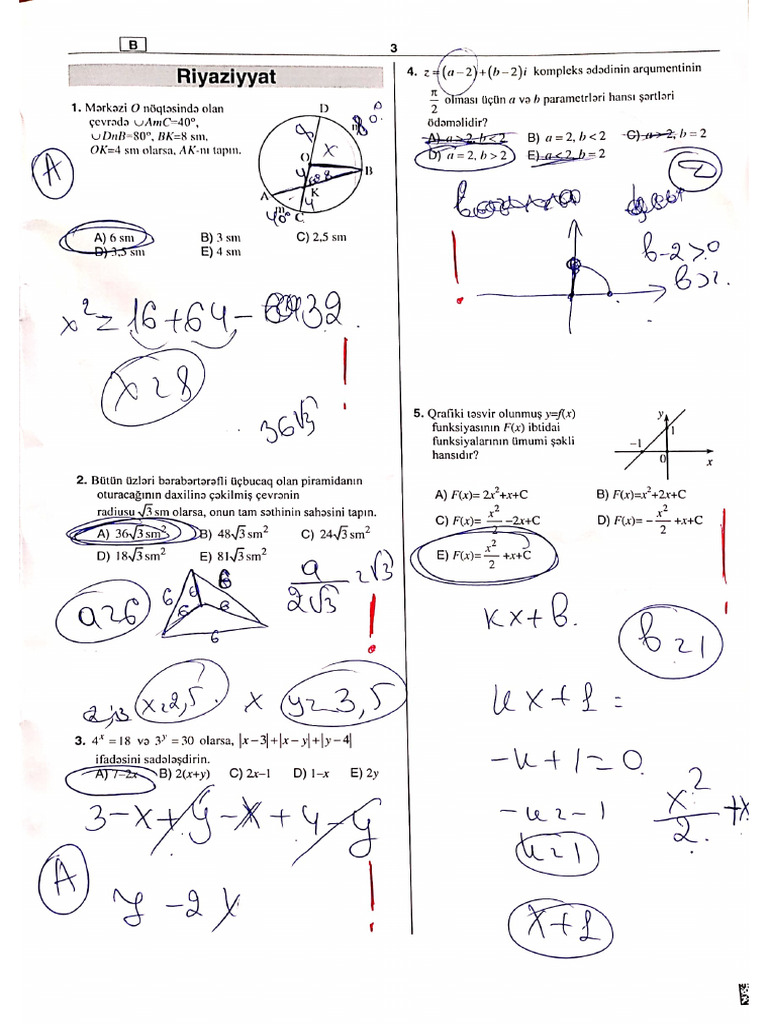 B
3
Riyaziyyat
1. Mərkəzi O nöqtəsində olan
çevrədə ∪AmC=40°,
∪DnB=80°, BK=8 sm,
OK=4 sm olarsa, AK-nı tapın.
D
n
80°
x
O
B
4
60°
8
K
A
m
40°
C
4
A
A) 6 sm B) 3 sm C) 2,5 sm
D) 3,5 sm E) 4 sm
x² = 16+64 - 32
x=8
36√3
2. Bütün üzləri bərabərtərəfli üçbucaq olan piramidanın
oturacağının daxilinə çəkilmiş çevrənin
radiusu √3 sm olarsa, onun tam səthinin sahəsini tapın.
A) 36√3 sm² B) 48√3 sm² C) 24√3 sm²
D) 18√3 sm² E) 81√3 sm²
a=6
6
6
6
6
6
6
a/2√3 = √3
x=2,5
x
y=3,5
3. 4ˣ = 18 və 3ʸ = 30 olarsa, |x−3|+|x−y|+|y−4|
ifadəsini sadələşdirin.
A) 7−2x B) 2(x+y) C) 2x−1 D) 1−x E) 2y
3-x+y-x+4-y
A
7-2x
4. z=(a−2)+(b−2)i kompleks ədədinin arqumentinin
π/2 olması üçün a və b parametrləri hansı şərtləri
ödəməlidir?
A) a>2, b<2 B) a=2, b<2 C) a>2, b=2
D) a=2, b>2 E) a<2, b=2
b-2>0
b>2
5. Qrafiki təsvir olunmuş y=f(x)
funksiyasının F(x) ibtidai
funksiyalarının ümumi şəkli
hansıdır?
y
1
−1
0
x
A) F(x)= 2x²+x+C B) F(x)=x²+2x+C
C) F(x)= x²/2 −2x+C D) F(x)= − x²/2 +x+C
E) F(x)= x²/2 +x+C
kx+b
b=1
kx+1=
-k+1=0
-k=-1
x²/2 +x
k=1
x+1